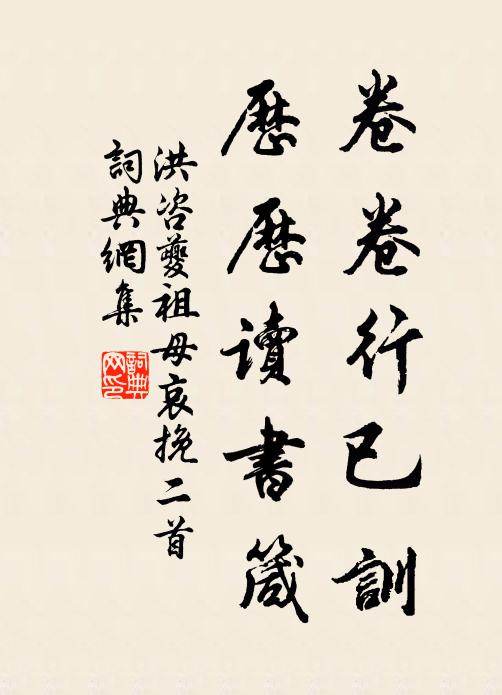 卷卷行已訓
歷歷讀書箴
洪咨夔祖母哀挽二首
詞典網集
詞典網印